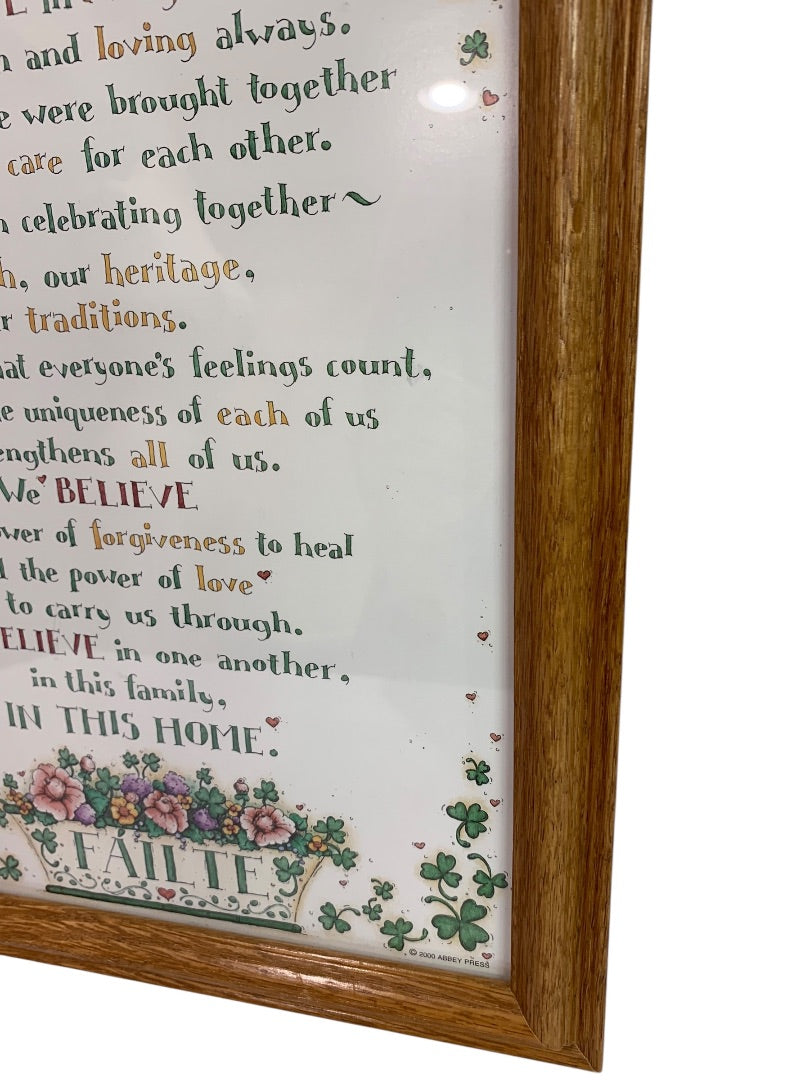 and loving always.
were brought together
care for each other.
celebrating together~
our heritage,
traditions.
everyone's feelings count,
uniqueness of each of us
all of us.
We BELIEVE
of forgiveness to heal
the power of love
to carry us through.
in one another,
in this family,
IN THIS HOME.
FÁILTE
© 2000 ABBEY PRESS